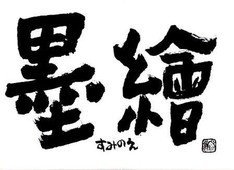 墨繪
すみのえ